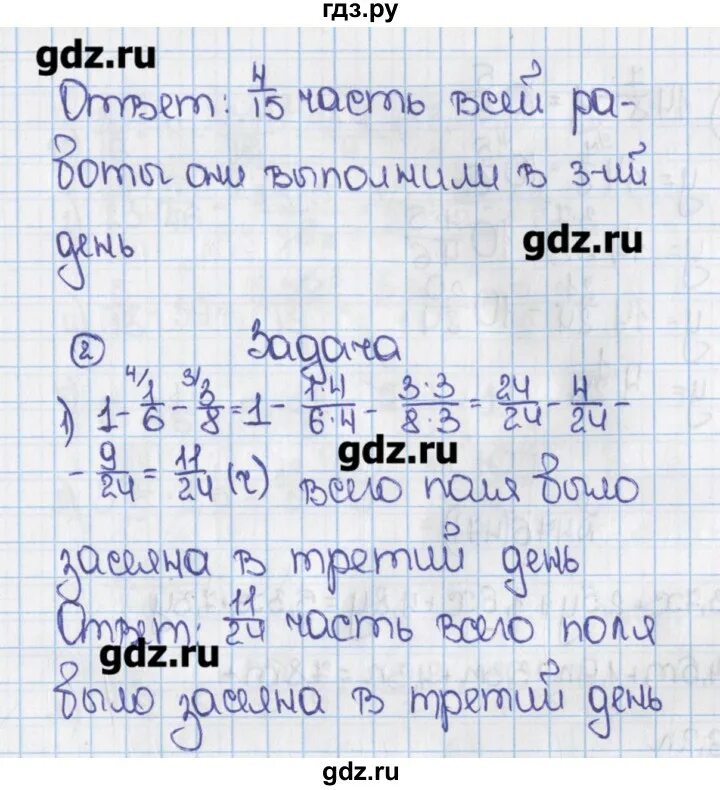 гдз.ру
gdz.ru
Ответ: 4/15 часть всей ра-
боты они выполнили в 3-ий
день
gdz.ru
② Задача
1) 1 - 4/ 1/6 - 3/ 3/8 = 1 - 1·4/6·4 - 3·3/8·3 = 24/24 - 4/24 -
- 9/24 = 11/24 (ч) всего поля было
gdz.ru
засеяна в третий день
Ответ: 11/24 часть всего поля
gdz.ru
было засеяна в третий день
gdz.ru